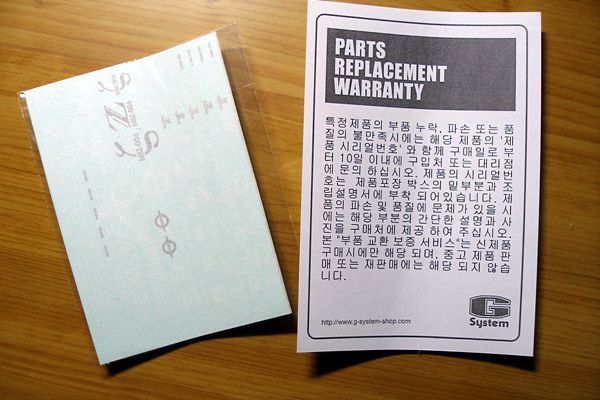 PARTS
REPLACEMENT
WARRANTY
특정제품의 부품 누락, 파손 또는 품
질의 불만족시에는 해당 제품의 '제
품 시리얼번호' 와 함께 구매일로 부
터 10일 이내에 구입처 또는 대리점
에 문의 하십시오. 제품의 시리얼번
호는 제품포장 박스의 밑부분과 조
립설명서에 부착 되어있습니다. 제
품의 파손 및 품질에 문제가 있을 시
에는 해당 부분의 간단한 설명과 사
진을 구매처에 제공 하여 주십시오.
본 "부품 교환 보증 서비스"는 신제품
구매시에만 해당 되며, 중고 제품 판
매 또는 재판매에는 해당 되지 않습
니다.
http://www.g-system-shop.com
G
System